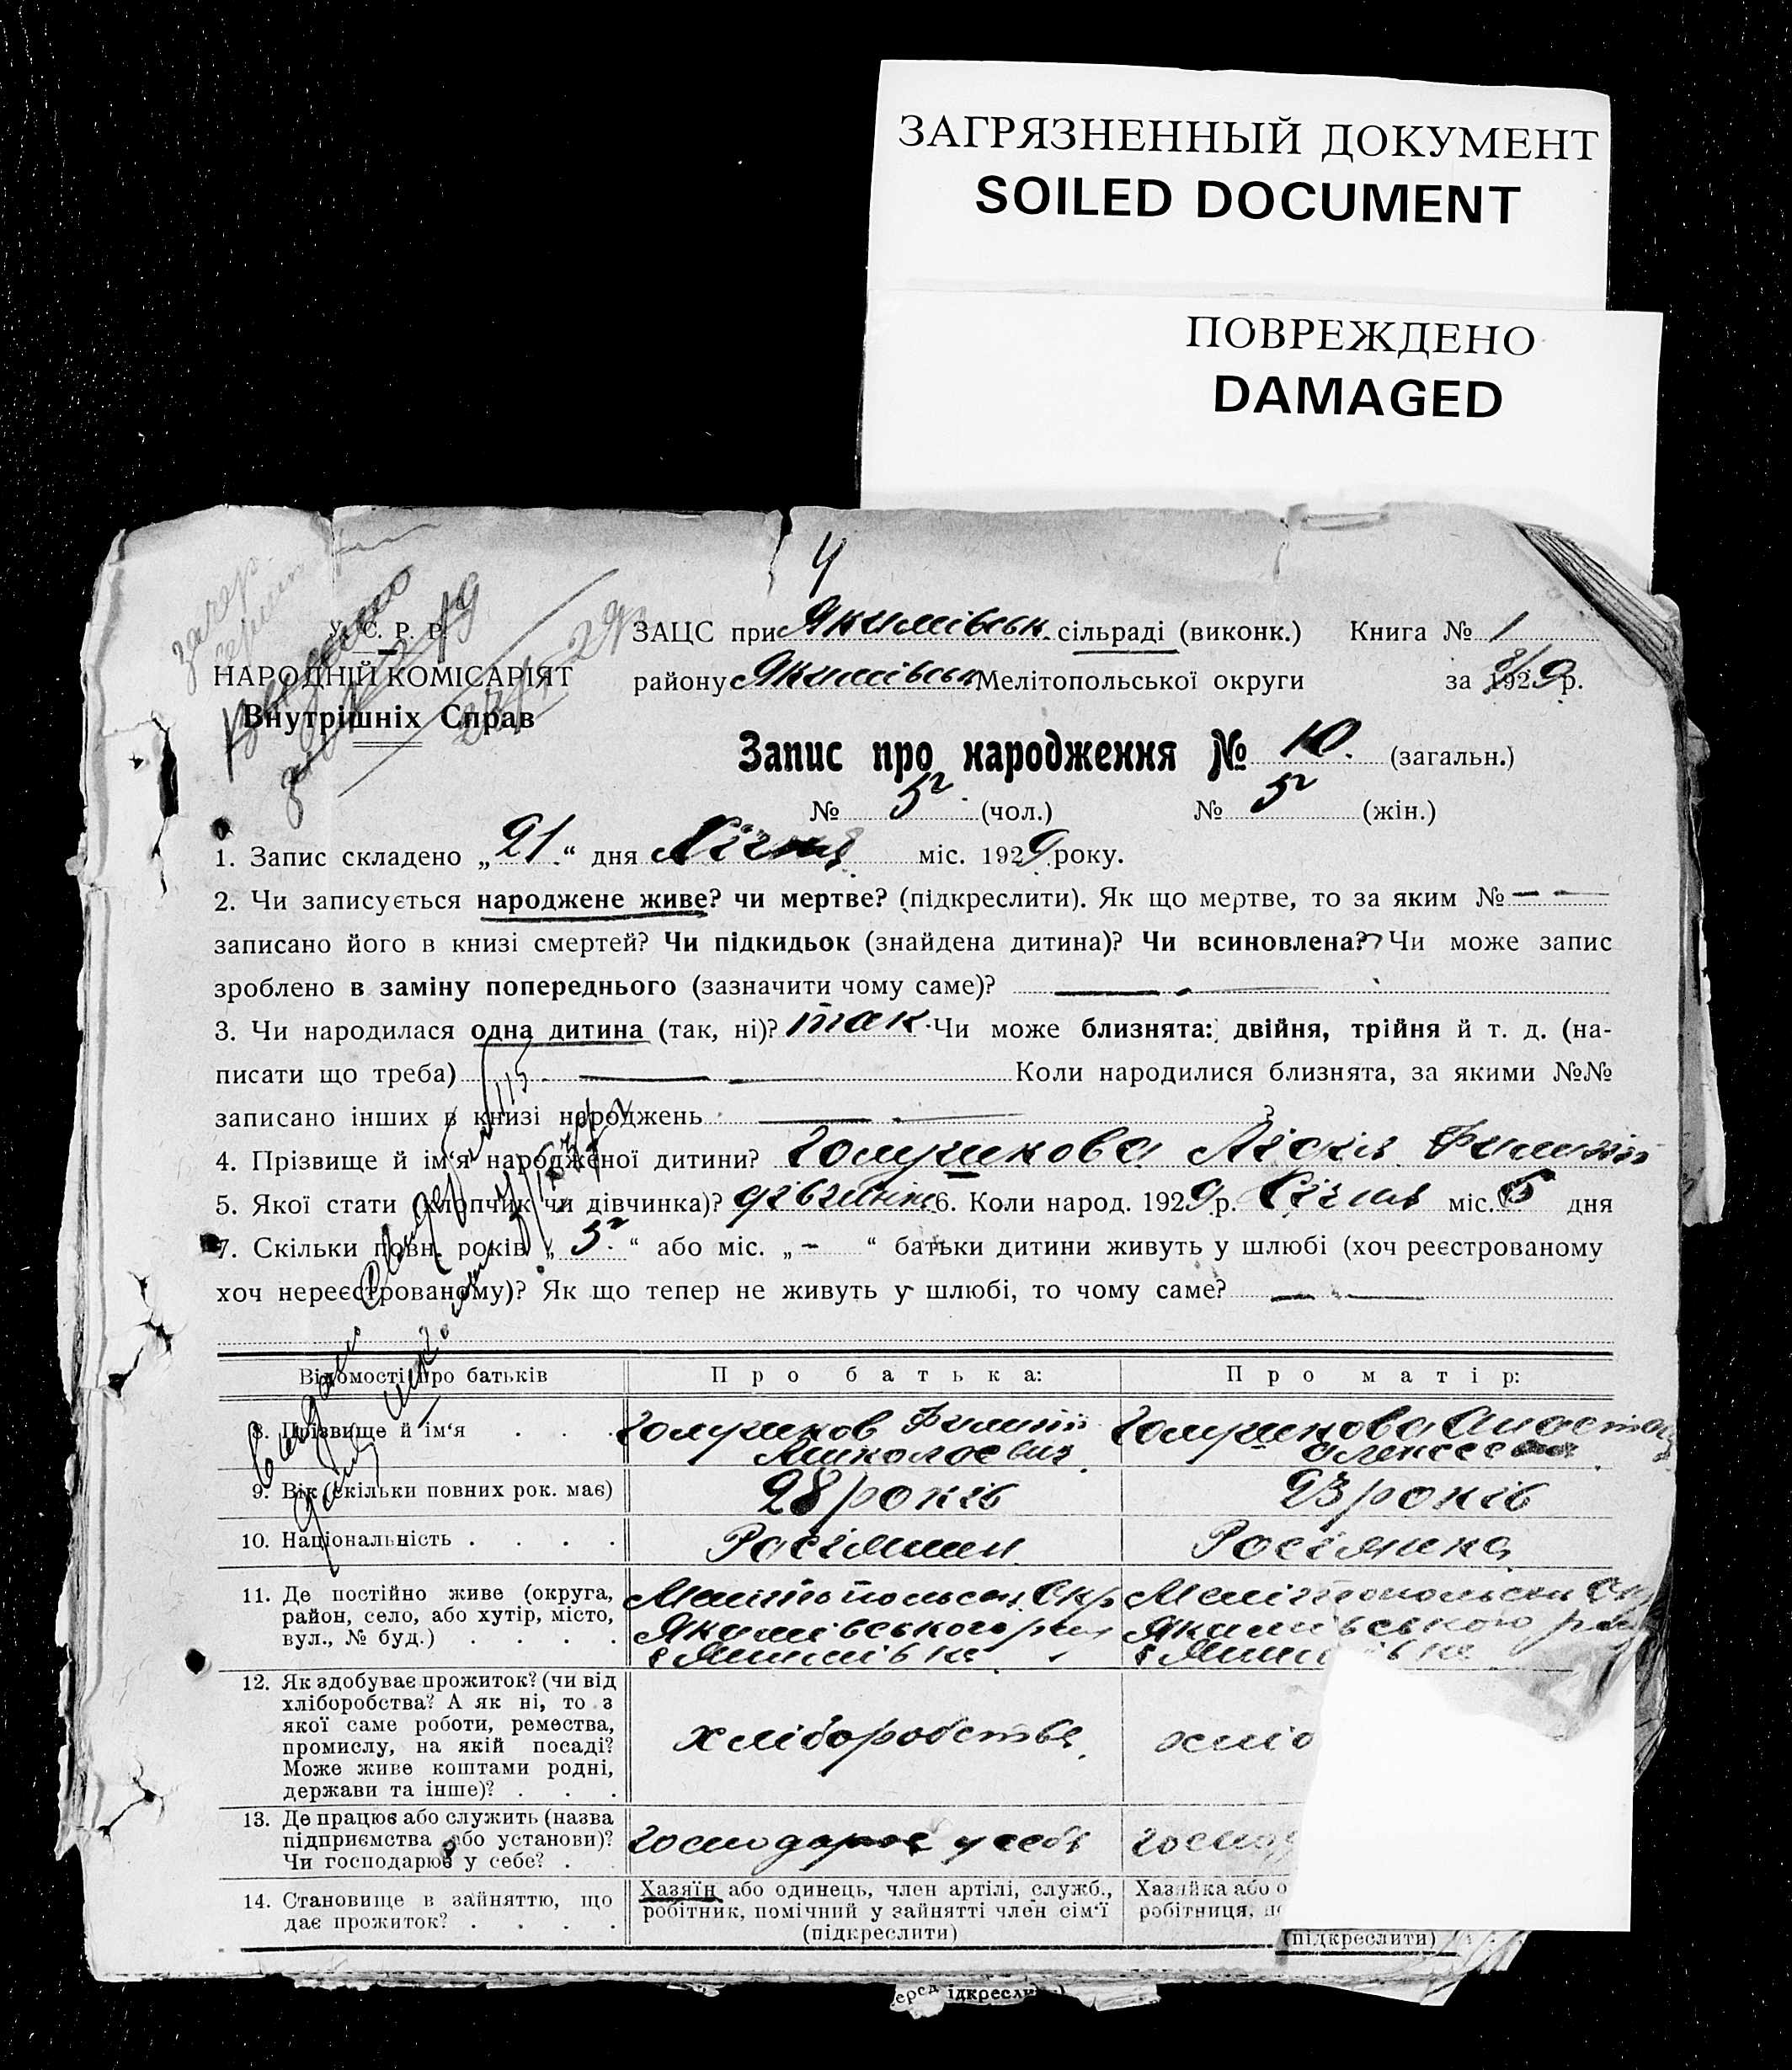 ЗАГРЯЗНЕННЫЙ ДОКУМЕНТ
SOILED DOCUMENT
ПОВРЕЖДЕНО
DAMAGED
4
У. С. Р. Р.
НАРОДНІЙ КОМІСАРІЯТ
Внутрішніх Справ
ЗАЦС при Якимівськ. сільраді (виконк.) Книга № 1
району Якимівськ Мелітопольської округи за 1929 р.
Запис про народження № 10. (загальн.)
№ 5 (чол.) № 5 (жін.)
1. Запис складено „21“ дня Січня міс. 1929 року.
2. Чи записується народжене живе? чи мертве? (підкреслити). Як що мертве, то за яким № — —
записано його в книзі смертей? Чи підкидьок (знайдена дитина)? Чи всиновлена? Чи може запис
зроблено в заміну попереднього (зазначити чому саме)?
3. Чи народилася одна дитина (так, ні)? так. Чи може близнята: двійня, трійня й т. д. (на-
писати що треба) Коли народилися близнята, за якими №№
записано інших в книзі народжень ?
4. Прізвище й ім‘я народженої дитини? Лідія
5. Якої стати (хлопчик чи дівчинка)? дівчинка 6. Коли народ. 1929 р. Січня міс. 6 дня
7. Скільки повн. років „5“ або міс. „-“ батьки дитини живуть у шлюбі (хоч реєстрованому
хоч нереєстрованому)? Як що тепер не живуть у шлюбі, то чому саме?
Відомості про батьків Про батька: Про матір:
8. Прізвище й ім‘я
9. Вік (скільки повних рок. має) 28 років 23 років
10. Національність Росіянин Росіянка
11. Де постійно живе (округа,
район, село, або хутір, місто,
вул., № буд.)
Якимівського
Якимівського
12. Як здобуває прожиток? (чи від
хліборобства? А як ні, то з
якої саме роботи, ремества,
промислу, на якій посаді?
Може живе коштами родні,
держави та інше)?
хліборобство
хліб
13. Де працює або служить (назва
підприємства або установи)?
Чи господарює у себе?
господарює у себе
господ
14. Становище в зайняттю, що
дає прожиток?
Хазяїн або одинець, член артілі, служб.,
робітник, помічний у зайнятті член сім‘ї
(підкреслити)
Хазяйка або о
робітниця, по
(підкреслити)